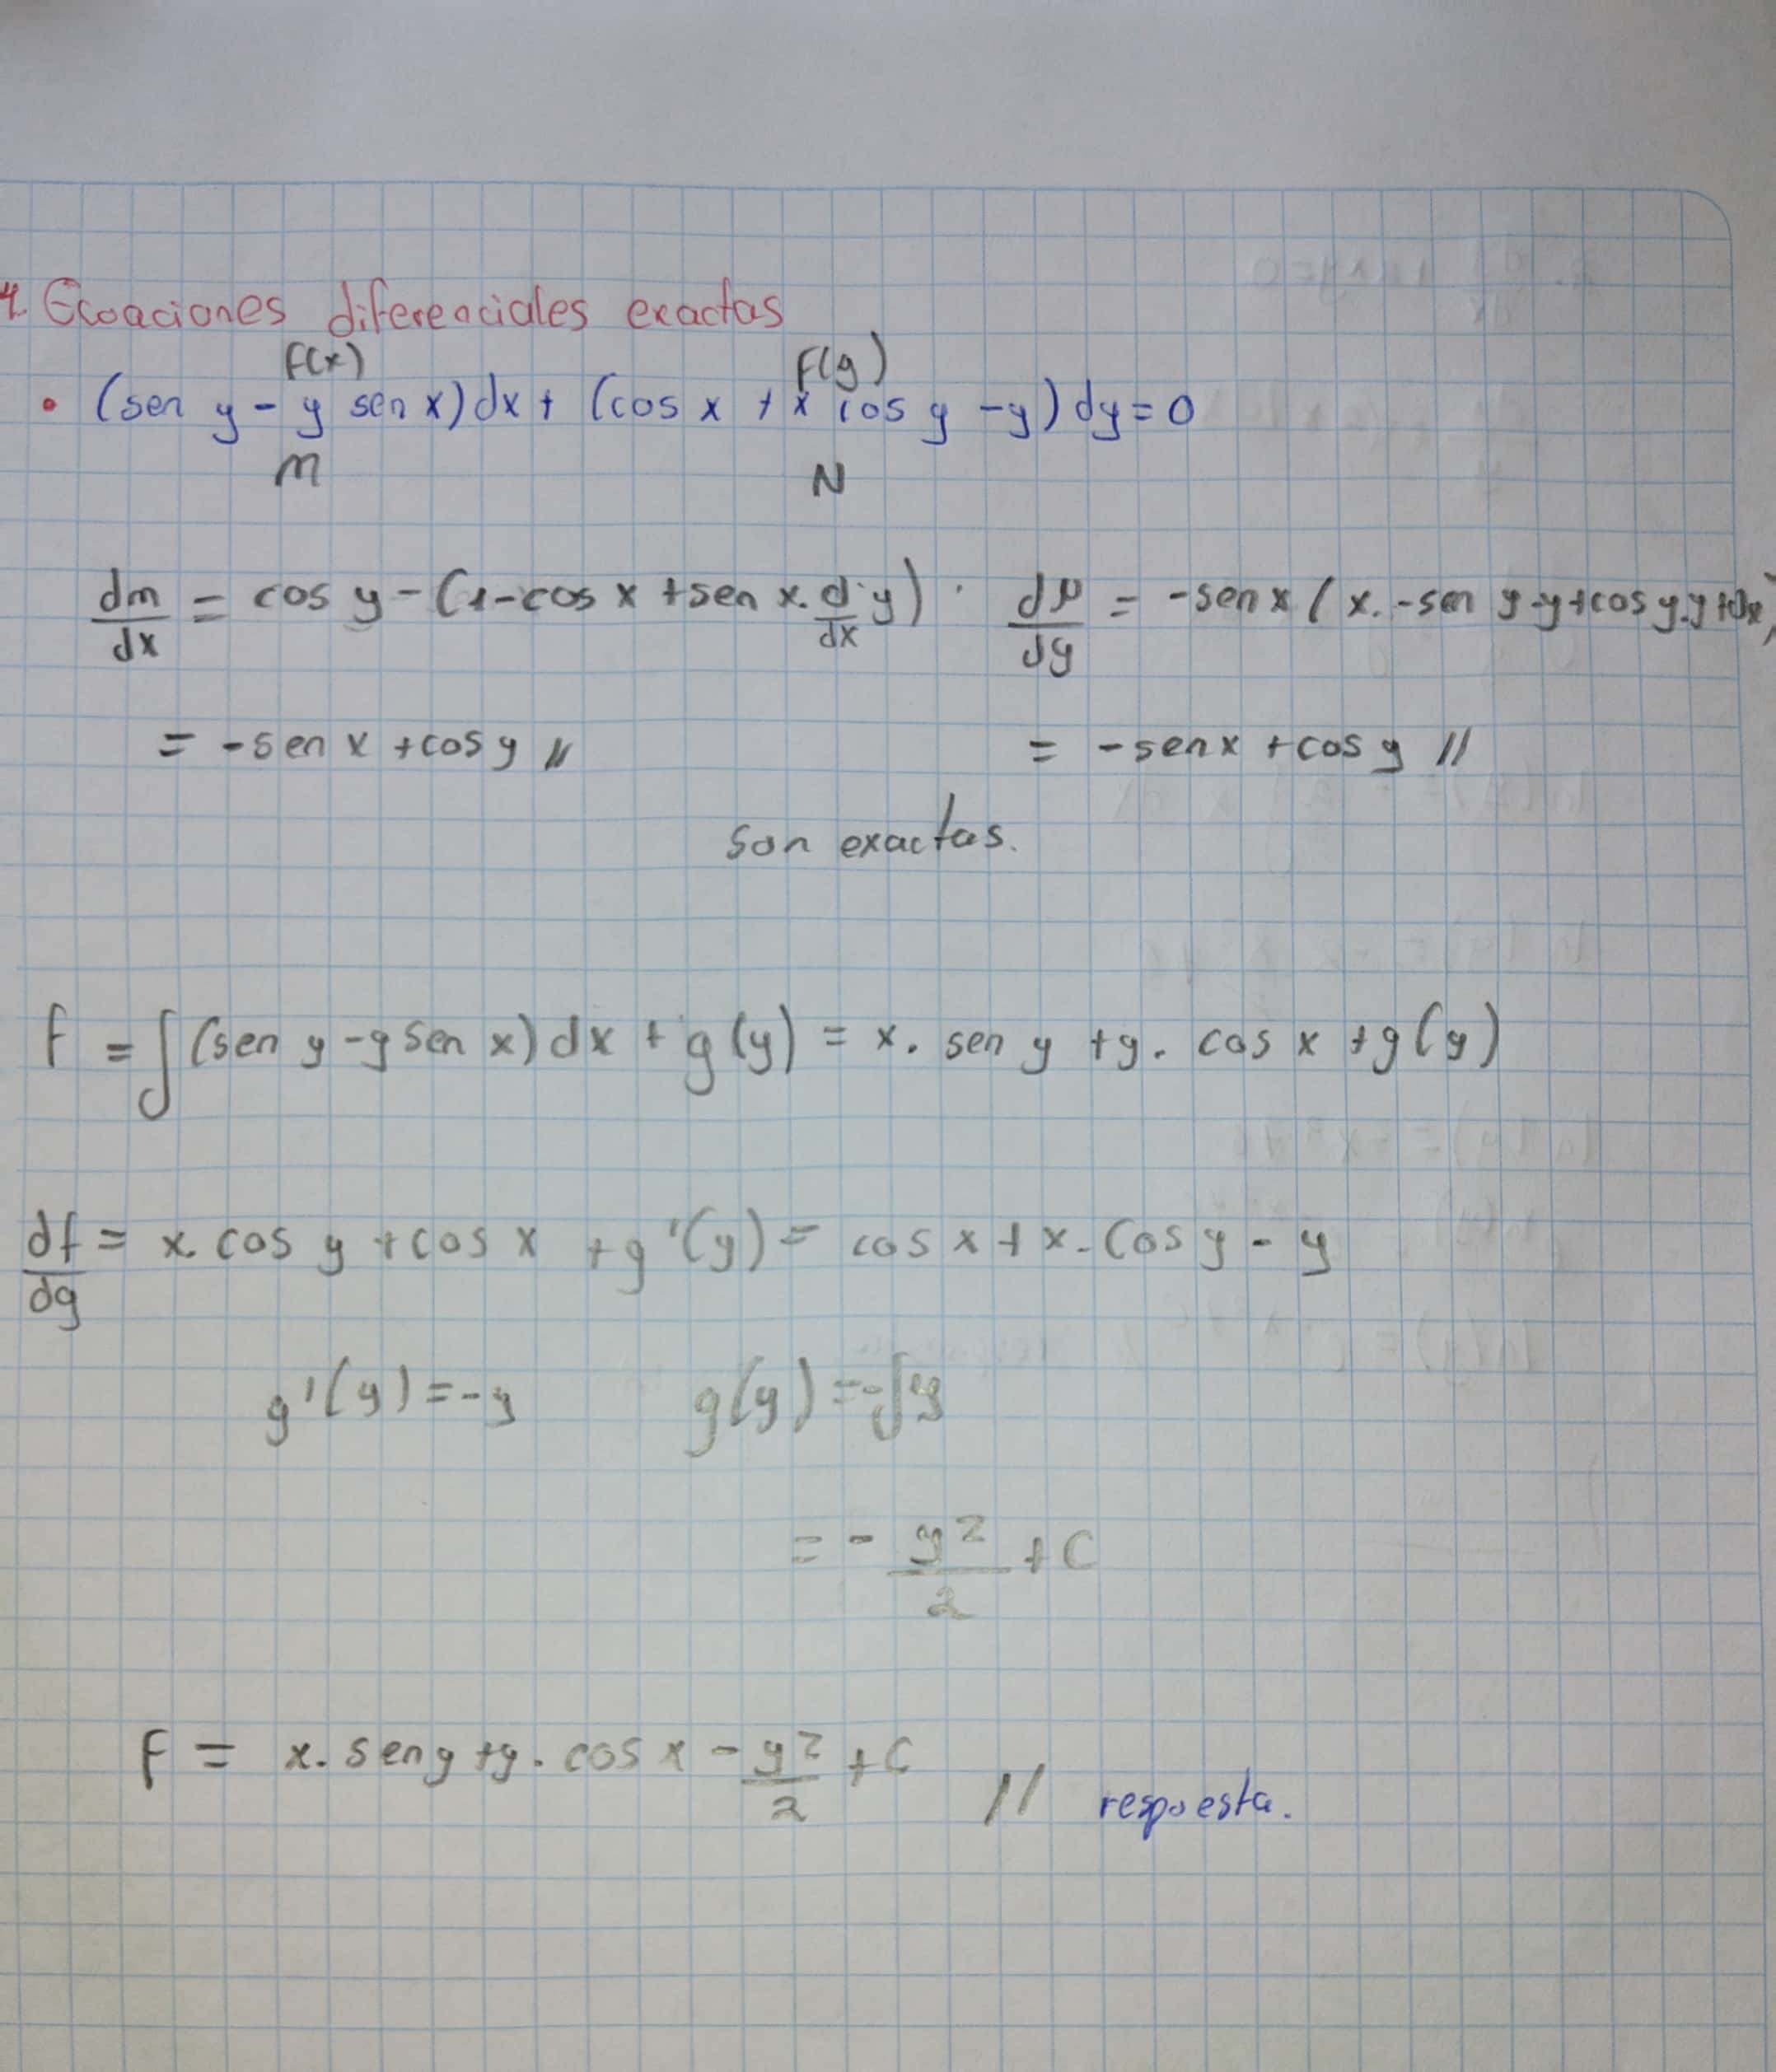 4. Ecuaciones diferenciales exactas
F(x) F(y)
• (sen y - y sen x) dx + (cos x + x cos y - y) dy = 0
M N
dm/dx = cos y - (1 - cos x + sen x . d/dx y) . dN/dy = -sen x ( x . -sen y - y + cos y . y + dx
= -sen x + cos y // = -sen x + cos y //
Son exactas.
F = ∫(sen y - y sen x) dx + g(y) = x . sen y + y . cos x + g(y)
df/dy = x . cos y + cos x + g'(y) = cos x + x . cos y - y
g'(y) = -y g(y) = -∫y
= - y²/2 + C
F = x . sen y + y . cos x - y²/2 + C // respuesta.